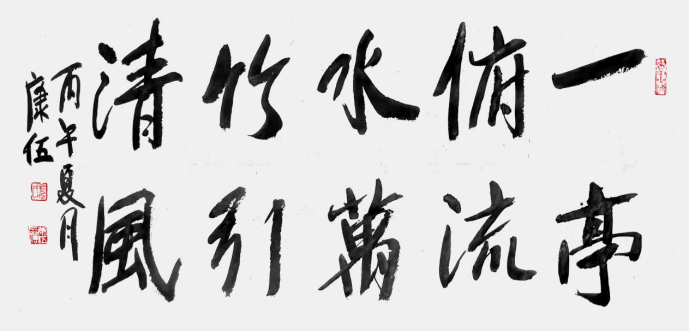 一亭
俯流
水萬
竹引
清風
丙午夏月
康伍